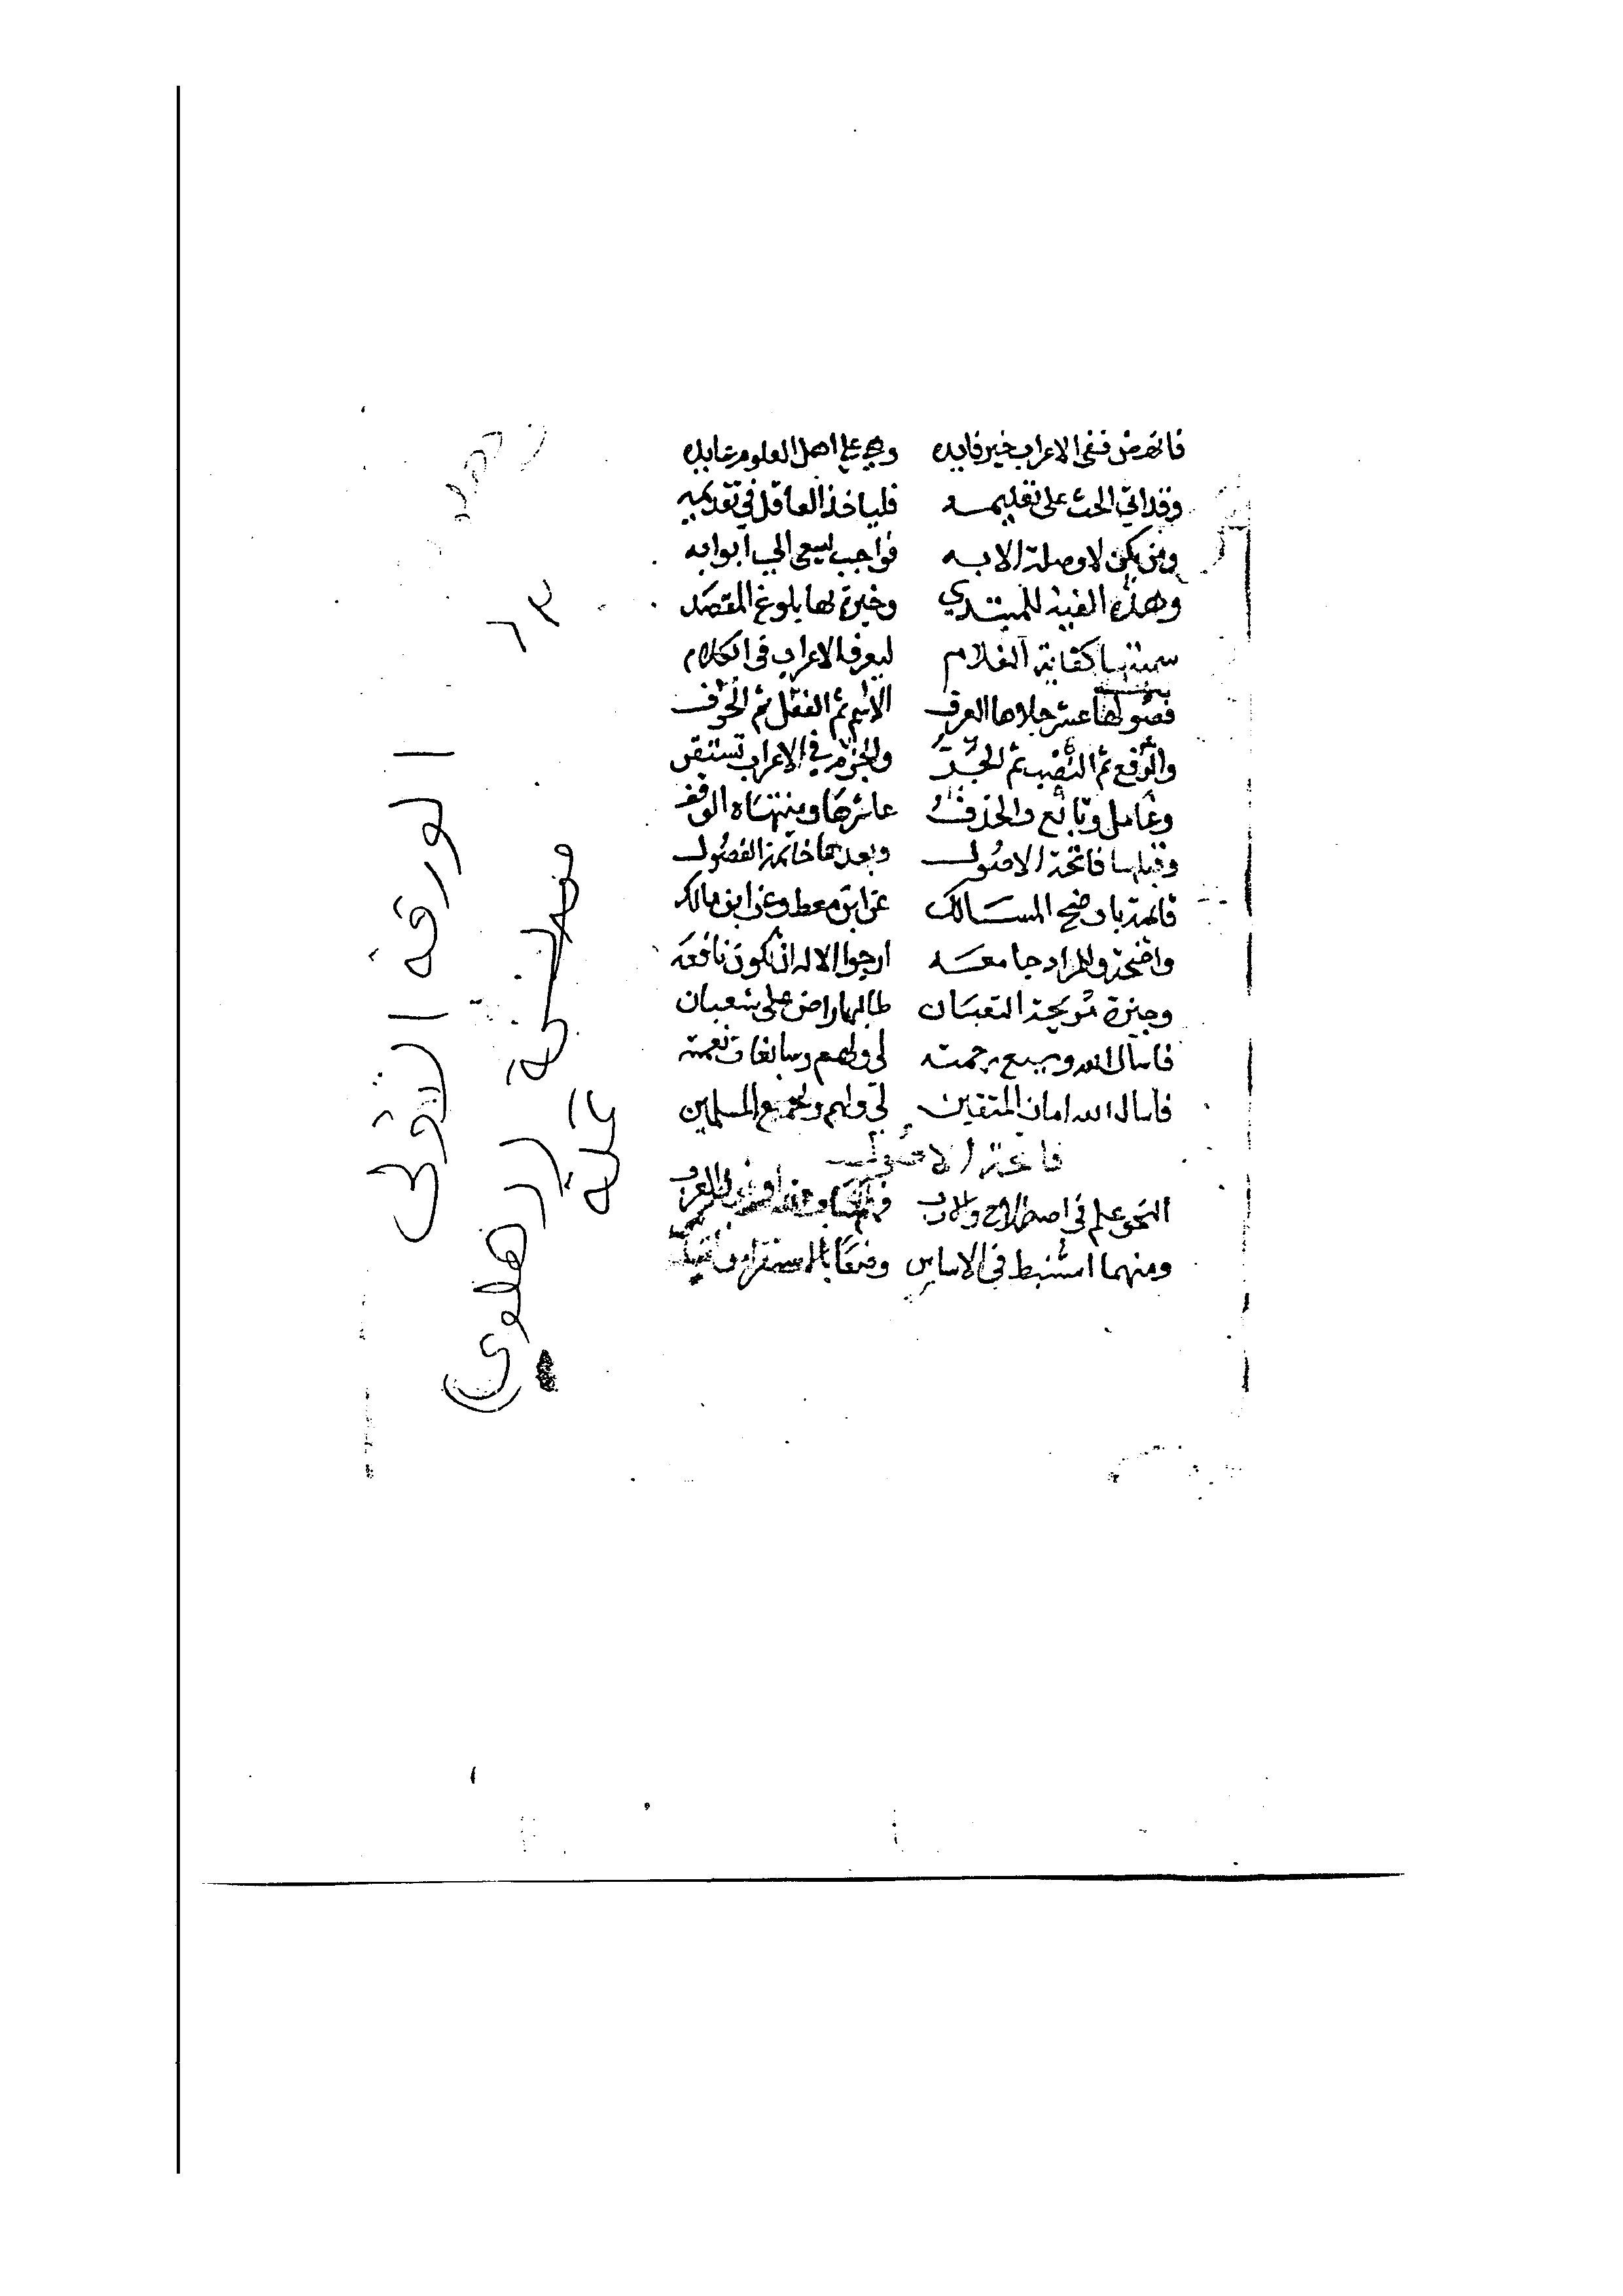 فانهض ففي الاعراب خير فايده وهي على اهل العلوم عايده
وقد اتى الحث على تعليمه فلياخذ العاقل في تقديمه
ومن يكن لا وصلة الا به فواجب يسعى الي ابوابه
وهذه الفية للمبتدي وخيرة لها بلوغ المقصد
سميتها كفاية الغلام ليعرف الاعراب في الكلام
فصولها عشر جلاها العرف الاسم ثم الفعل ثم الحرف
والرفع ثم النصب ثم الجر والجزم في الاعراب تستقر
وعامل وتابع والحذف عاشرها ومنتهاه الوقف
وقبلها فاتحة الاصول وبعدها خاتمة الفصول
فانهد باوضح المسالك عن ابن معط وعن ابن مالك
واضحة وللمراد جامعه ارجوا الاله ان تكون نافعه
وجيزة مريحة التعبان طالبها راض على شعبان
فاسال الله وسيع رحمته لي ولهم وسابغات نعمته
فاسال الله امان المتقين لي ولهم ولجميع المسلمين
فاتحة الاصول
النحو علم في اصطلاح والادب للعرب
ومنهما استنبط في الاساس وضعا بالاستقراء
١٣
الورقه الاولى
من نسخة
(زهلوي)